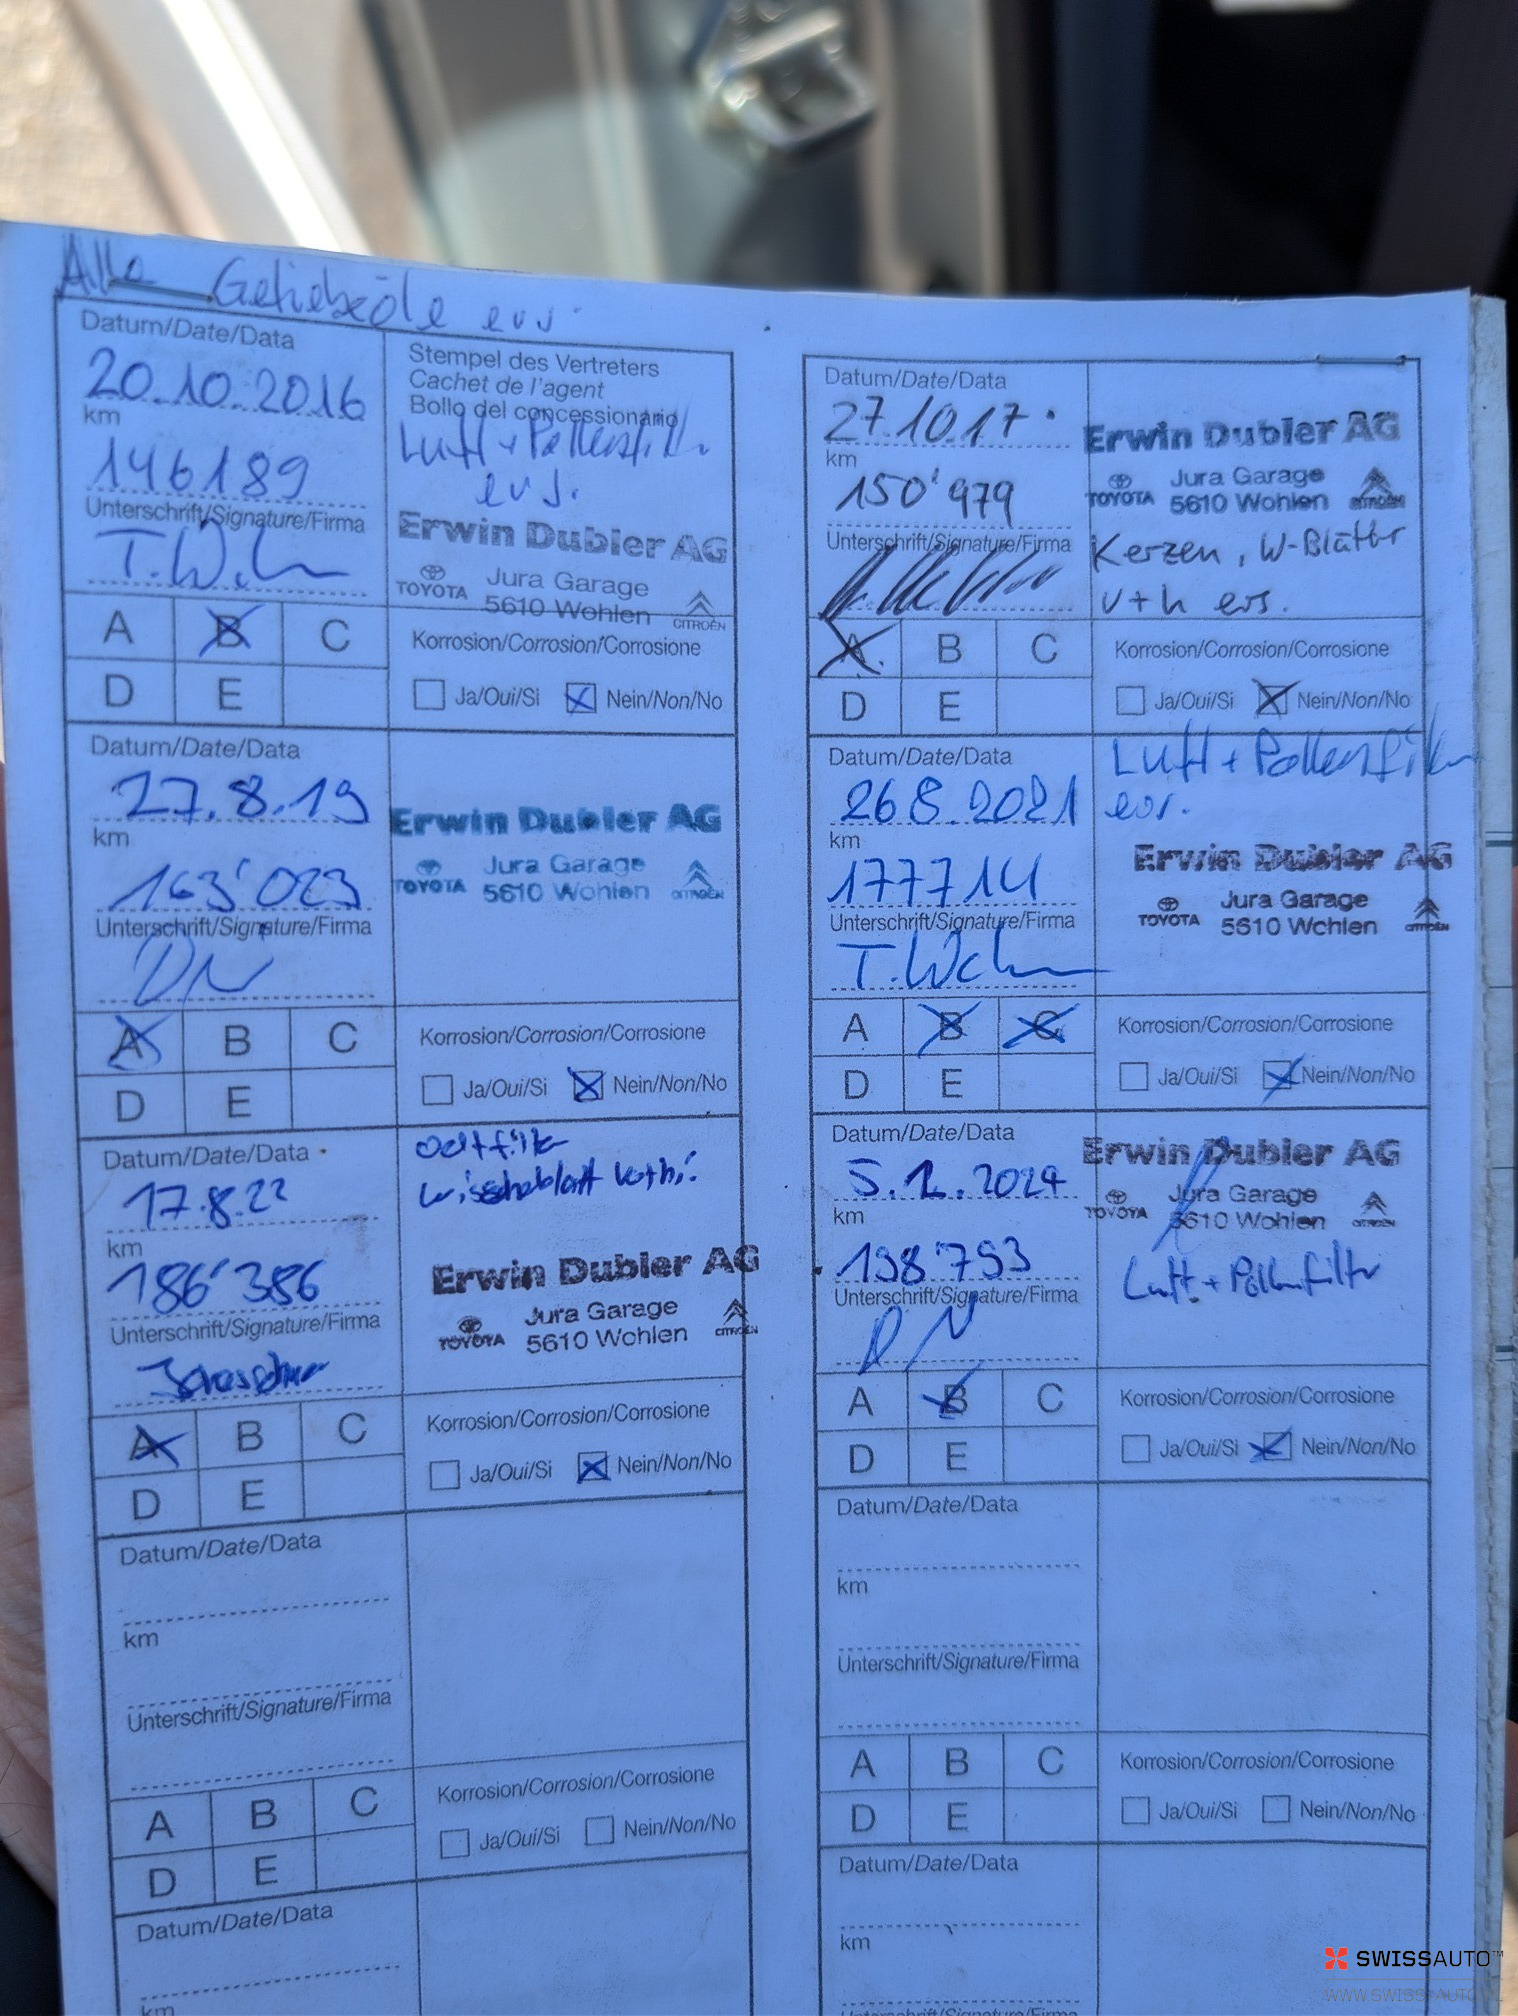 Alle Getriebeöle ers.
Datum/Date/Data
20.10.2016
km
146189
Unterschrift/Signature/Firma
Stempel des Vertreters
Cachet de l'agent
Bollo del concessionario
Luft + Pollenfilter
ers.
Erwin Dubler AG
TOYOTA
Jura Garage
5610 Wohlen
CITROËN
A B C
D E
Korrosion/Corrosion/Corrosione
Ja/Oui/Si Nein/Non/No
Datum/Date/Data
27.10.17.
km
150'979
Unterschrift/Signature/Firma
Erwin Dubler AG
TOYOTA
Jura Garage
5610 Wohlen
CITROËN
Kerzen, W-Blätter
v+h ers.
A B C
D E
Korrosion/Corrosion/Corrosione
Ja/Oui/Si Nein/Non/No
Datum/Date/Data
27.8.19
km
163'023
Unterschrift/Signature/Firma
Erwin Dubler AG
TOYOTA
Jura Garage
5610 Wohlen
CITROËN
A B C
D E
Korrosion/Corrosion/Corrosione
Ja/Oui/Si Nein/Non/No
Datum/Date/Data
26.8.2021
km
177714
Unterschrift/Signature/Firma
Luft + Pollenfilter
ers.
Erwin Dubler AG
TOYOTA
Jura Garage
5610 Wohlen
CITROËN
A B C
D E
Korrosion/Corrosion/Corrosione
Ja/Oui/Si Nein/Non/No
Datum/Date/Data
17.8.22
km
186'386
Unterschrift/Signature/Firma
Erwin Dubler AG
TOYOTA
Jura Garage
5610 Wohlen
CITROËN
A B C
D E
Korrosion/Corrosion/Corrosione
Ja/Oui/Si Nein/Non/No
Datum/Date/Data
2024
km
198'793
Unterschrift/Signature/Firma
Erwin Dubler AG
TOYOTA
Jura Garage
5610 Wohlen
CITROËN
Luft + Pollenfilter
A B C
D E
Korrosion/Corrosion/Corrosione
Ja/Oui/Si Nein/Non/No
Datum/Date/Data
km
Unterschrift/Signature/Firma
A B C
D E
Korrosion/Corrosion/Corrosione
Ja/Oui/Si Nein/Non/No
Datum/Date/Data
km
Unterschrift/Signature/Firma
A B C
D E
Korrosion/Corrosion/Corrosione
Ja/Oui/Si Nein/Non/No
Datum/Date/Data
km
Datum/Date/Data
km
Unterschrift/Signature/Firma
SWISSAUTO™